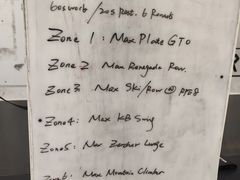 60s work / 20s Rest. 6 Rounds
Zone 1 : Max Plate GTO
Zone 2 Max Renegade Row.
Zone 3 Max Ski/Row @ RPE8
Zone 4: Max KB Swing
Zone 5: Max Zercher Lunge
Zone 6: Max Mountain Climber